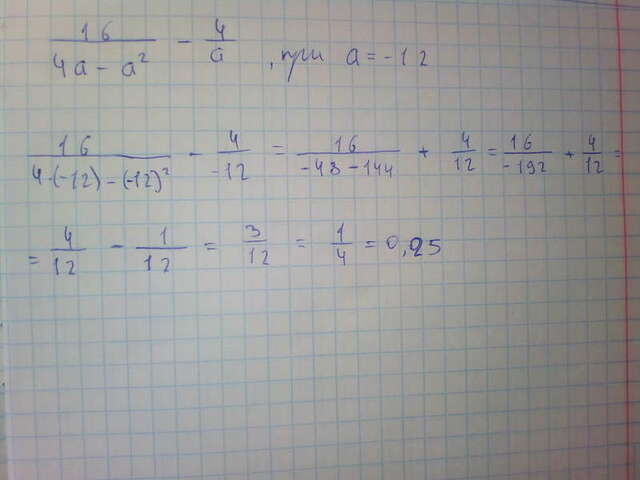 16/(4a - a²) - 4/a , при a = -12
16/(4·(-12) - (-12)²) - 4/-12 = 16/(-48 - 144) + 4/12 = 16/-192 + 4/12 =
= 4/12 - 1/12 = 3/12 = 1/4 = 0,25